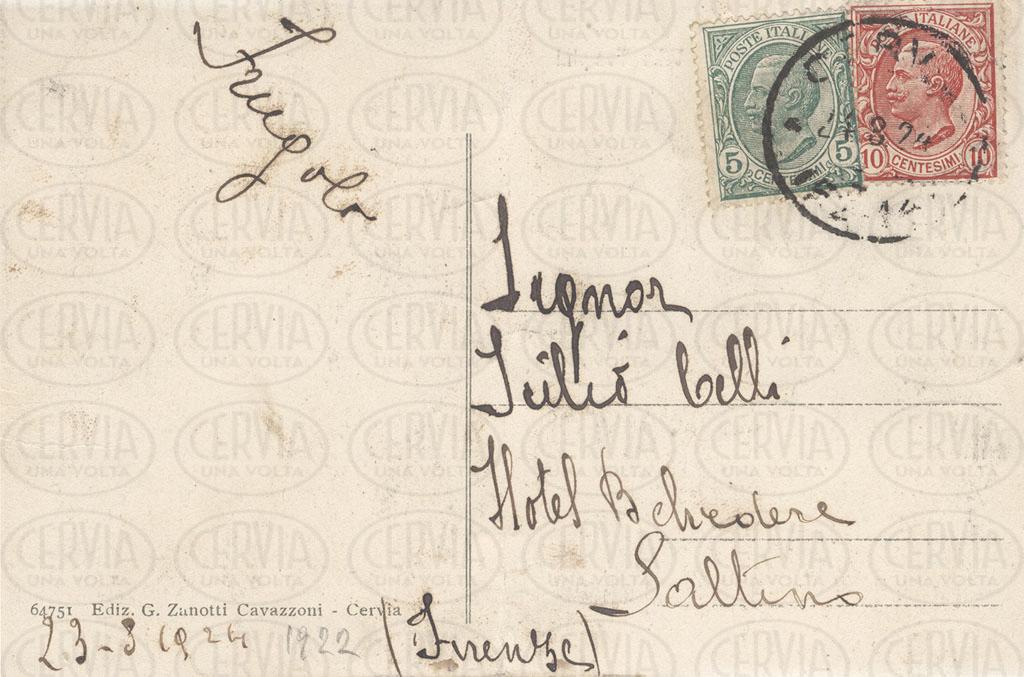 Frugolo
POSTE ITALIANE
5 CENTESIMI 5
POSTE ITALIANE
10 CENTESIMI 10
24 8 24
Signor
Icilio Celli
Hotel Belvedere
Saltino
(Firenze)
64751 Ediz. G. Zanotti Cavazzoni - Cervia
23-8 1924 1922
CERVIA
UNA VOLTA